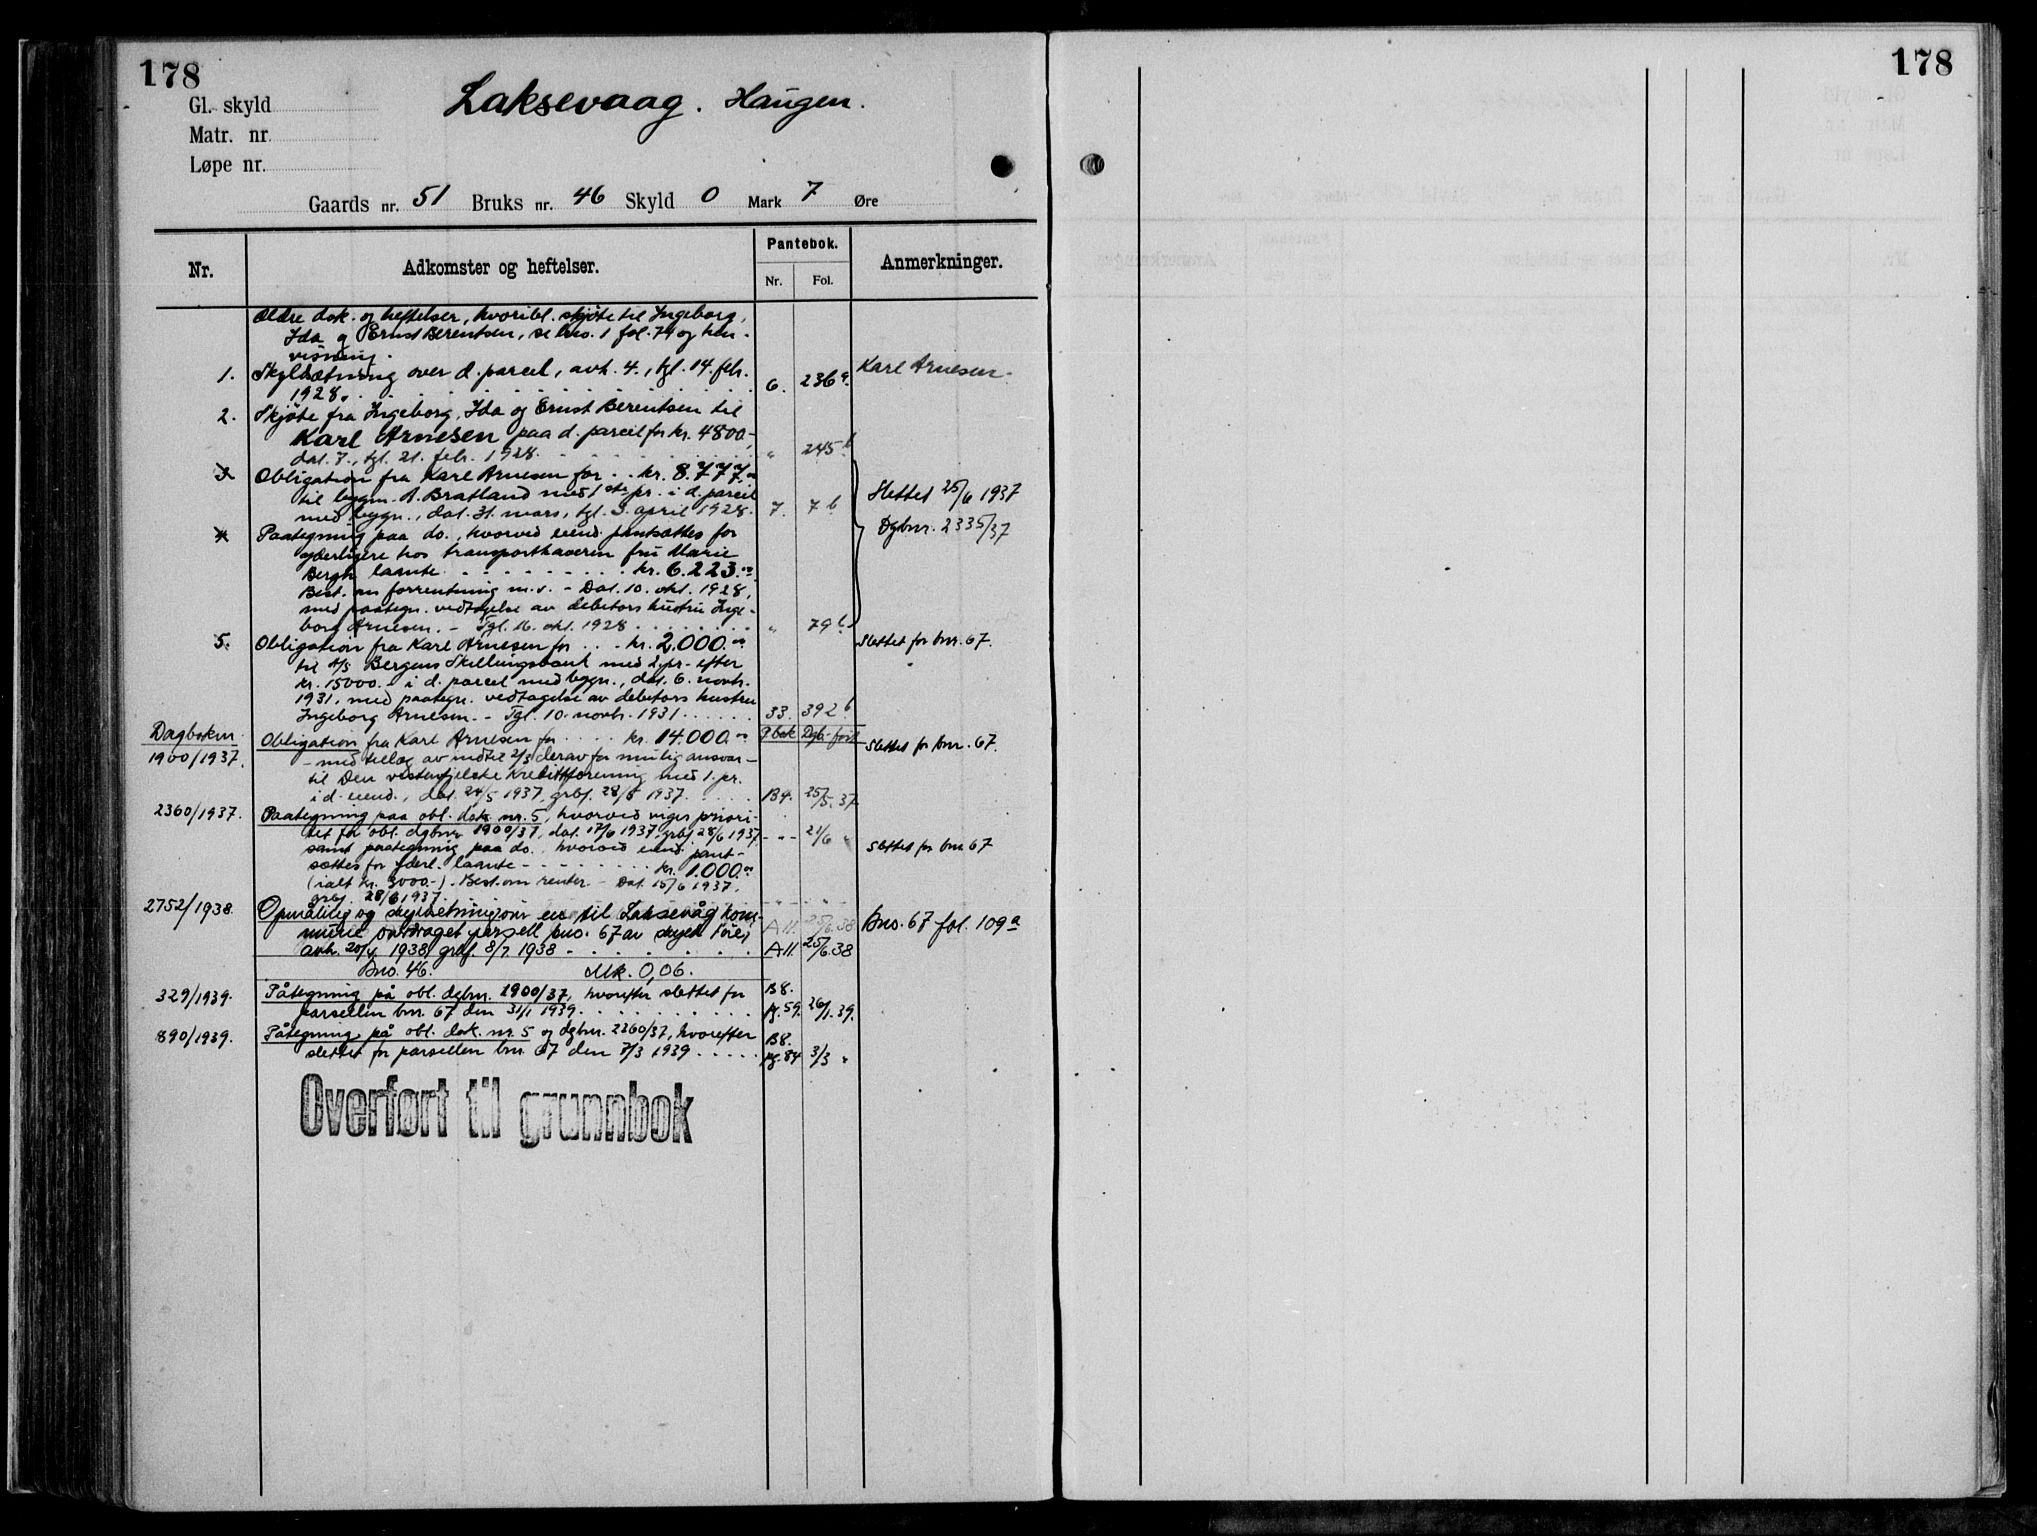 178
Gl. skyld
Laksevaag. Haugen.
Matr. nr.
Løpe nr.
Gaards nr. 51 Bruks nr. 46 Skyld 0 Mark 7 Øre
Nr. Adkomster og heftelser. Pantebok. Nr. Fol. Anmerkninger.
Ældre dok. og heftelser, hvoribl. skjøte til Ingeborg,
Ida og Ernst Berentsen, se bno. 1 fol. 74 og hen-
visning.
1. Skyldsætning over d. parcel, avh. 4., tgl. 14. febr. Karl Arnesen
1928. 6. 236 a.
2. Skjøte fra Ingeborg, Ida og Ernst Berentsen til
Karl Arnesen paa d. parcel for kr. 4800.-,
dat. 7., tgl. 21. febr. 1928. " 245 b
3. Obligation fra Karl Arnesen for . . kr. 8.777.00
til bygm. A. Bratland med 1ste pr. i d. parcel Slettet 25/6 1937
med bygn., dat. 31. mars, tgl. 3. april 1928. 7. 7 b Dgbnr. 2335/37
4. Paategning paa do., hvorved eiend. pantsættes for
yderligere hos transporthaveren fru Marie
Bergh laante kr. 6.223.00
Best. om forrentning m.v. - Dat. 10. okt. 1928,
med paategn. vedtagelse av debitors hustru Inge-
borg Arnesen. - Tgl. 16. okt. 1928 " 79 b
5. Obligation fra Karl Arnesen for . . . kr. 2.000.00 Slettet for bnr. 67.
til A/S Bergens Skillingsbank med 2. pr. efter
kr. 15000.- i d. parcel med bygn., dat. 6. novbr.
1931, med paategn. vedtagelse av debitors hustru
Ingeborg Arnesen. - Tgl. 10. novbr. 1931 33. 392 b
Dagboknr. P.bok Dgb. ført
1900/1937. Obligation fra Karl Arnesen for kr. 14.000.00 Slettet for bnr. 67.
- med tillæg av indtil 2/5 derav for mulig ansvar -
til Den vestenfjelske Kreditforening med 1. pr.
i d. eiend., dat. 24/5 1937, grbf. 28/5 1937. B4. 25/5.37.
2360/1937. Paategning paa obl. dok. nr. 5, hvorved viger priori-
tet for obl. dgbnr. 1900/37, dat. 17/6 1937, grbf. 28/6 1937. - - - 21/6 "
samt paategning paa do. hvorved eiend. pant- Slettet for bnr 67
sættes for yderl. laante kr. 1.000.00
(ialt kr. 3000.-). Best. om renter - Dat. 15/6 1937.
grbf. 28/6 1937.
2752/1938. Opmåling og skyldsetning over en til Laksevåg kom- A11. 25/6.38 Bno. 67 fol. 109 a
mune overdraget parsell bno. 67 av skyld 1 øre,
avh. 20/4 1938, grbf. 8/7. 1938 - A11. 25/6.38
Bno. 46. Mk. 0,06.
329/1939. Påtegning på obl. dgbnr. 1900/37, hvorefter slettet for B8.
parsellen bnr. 67 den 31/1 1939. pg. 59. 26/1. 39.
890/1939. Påtegning på obl. dok. nr. 5 og dgbnr. 2360/37, hvorefter B8.
slettet for parsellen bnr. 67 den 7/3 1939 pg. 84 3/3 "
Overført til grunnbok
178